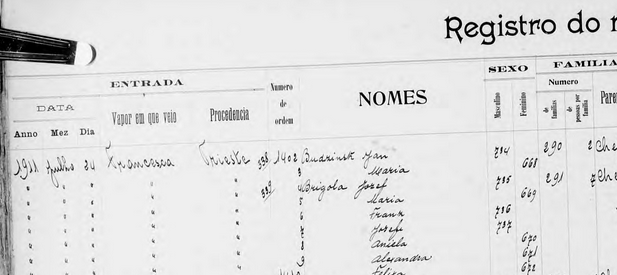 Registro do
ENTRADA
Numero de ordem
NOMES
SEXO
FAMILIA
DATA
Vapor em que veio
Procedencia
Masculino
Feminino
Numero
de familias
de pessoas por familia
Anno Mez Dia
1911 Julho 24 Francesca Trieste 338 1402 Budzinsk Jan 734 290 2 Che
" " " " " 3 Maria 668
" " " " " 339 4 Brigola Josef 735 291 7 Che
" " " " " 5 Maria 669
" " " " " 6 Frank 736
" " " " " 7 Josefa 737
" " " " " 8 Aniela 670
" " " " " 9 Alexandra 671
Felixa 672